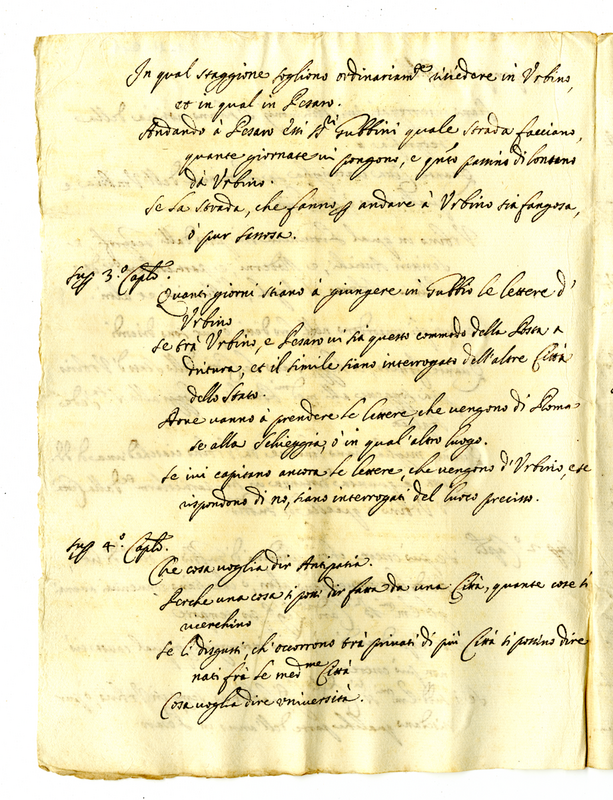 In qual staggione sogliono ordinariam.te risiedere in Urbino,
et in qual in Pesaro.
Andando à Pesaro essi SS.ri Gubbini quale strada facciano,
quante giornate vi pongono, e q.nto passino di lontano
dà Urbino.
Se la strada, che fanno p andare à Urbino sia fangosa,
ò pur sassosa.
Sup 3.º Capló.
Quanti giorni stiano à giungere in Gubbio le lettere d'
Urbino
Se trà Urbino, e Pesaro vi sia questo commodo della Posta a
dritura, et il simile siano interrogati dell'altre Città
dello Stato.
Dove vanno à prendere le lettere, che vengono di Roma
se alla Schieggia, ò in qual'altro luogo.
Se ivi capitano ancora le lettere, che vengono d'Urbino, e se
rispondono di nò, siano interrogati del luoco preciso.
Sup 4.º Capló.
Che cosa voglia dir Antipatia.
Perche una cosa si possi dir fatta da una Città, quante cose si
ricerchino
Se li disgusti, ch'occorrono trà privati di più Città si possino dire
nati frà le med.me Città
Cosa voglia dire università.